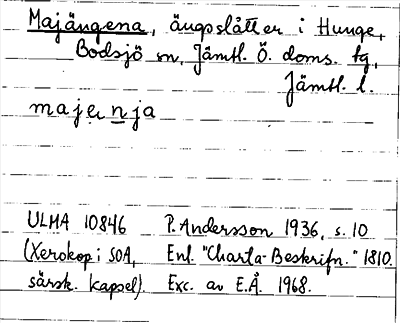 Majängena, ängsslåtter i Hunge,
Bodsjö sn, Jämtl. Ö. doms. tg,
Jämtl. l.
majenja
ULMA 10846 P. Andersson 1936, s. 10
(Xerokop i SOA, Enl. "Charta-Beskrifn." 1810.
särsk. kapsel). Exc. av E.Å. 1968.